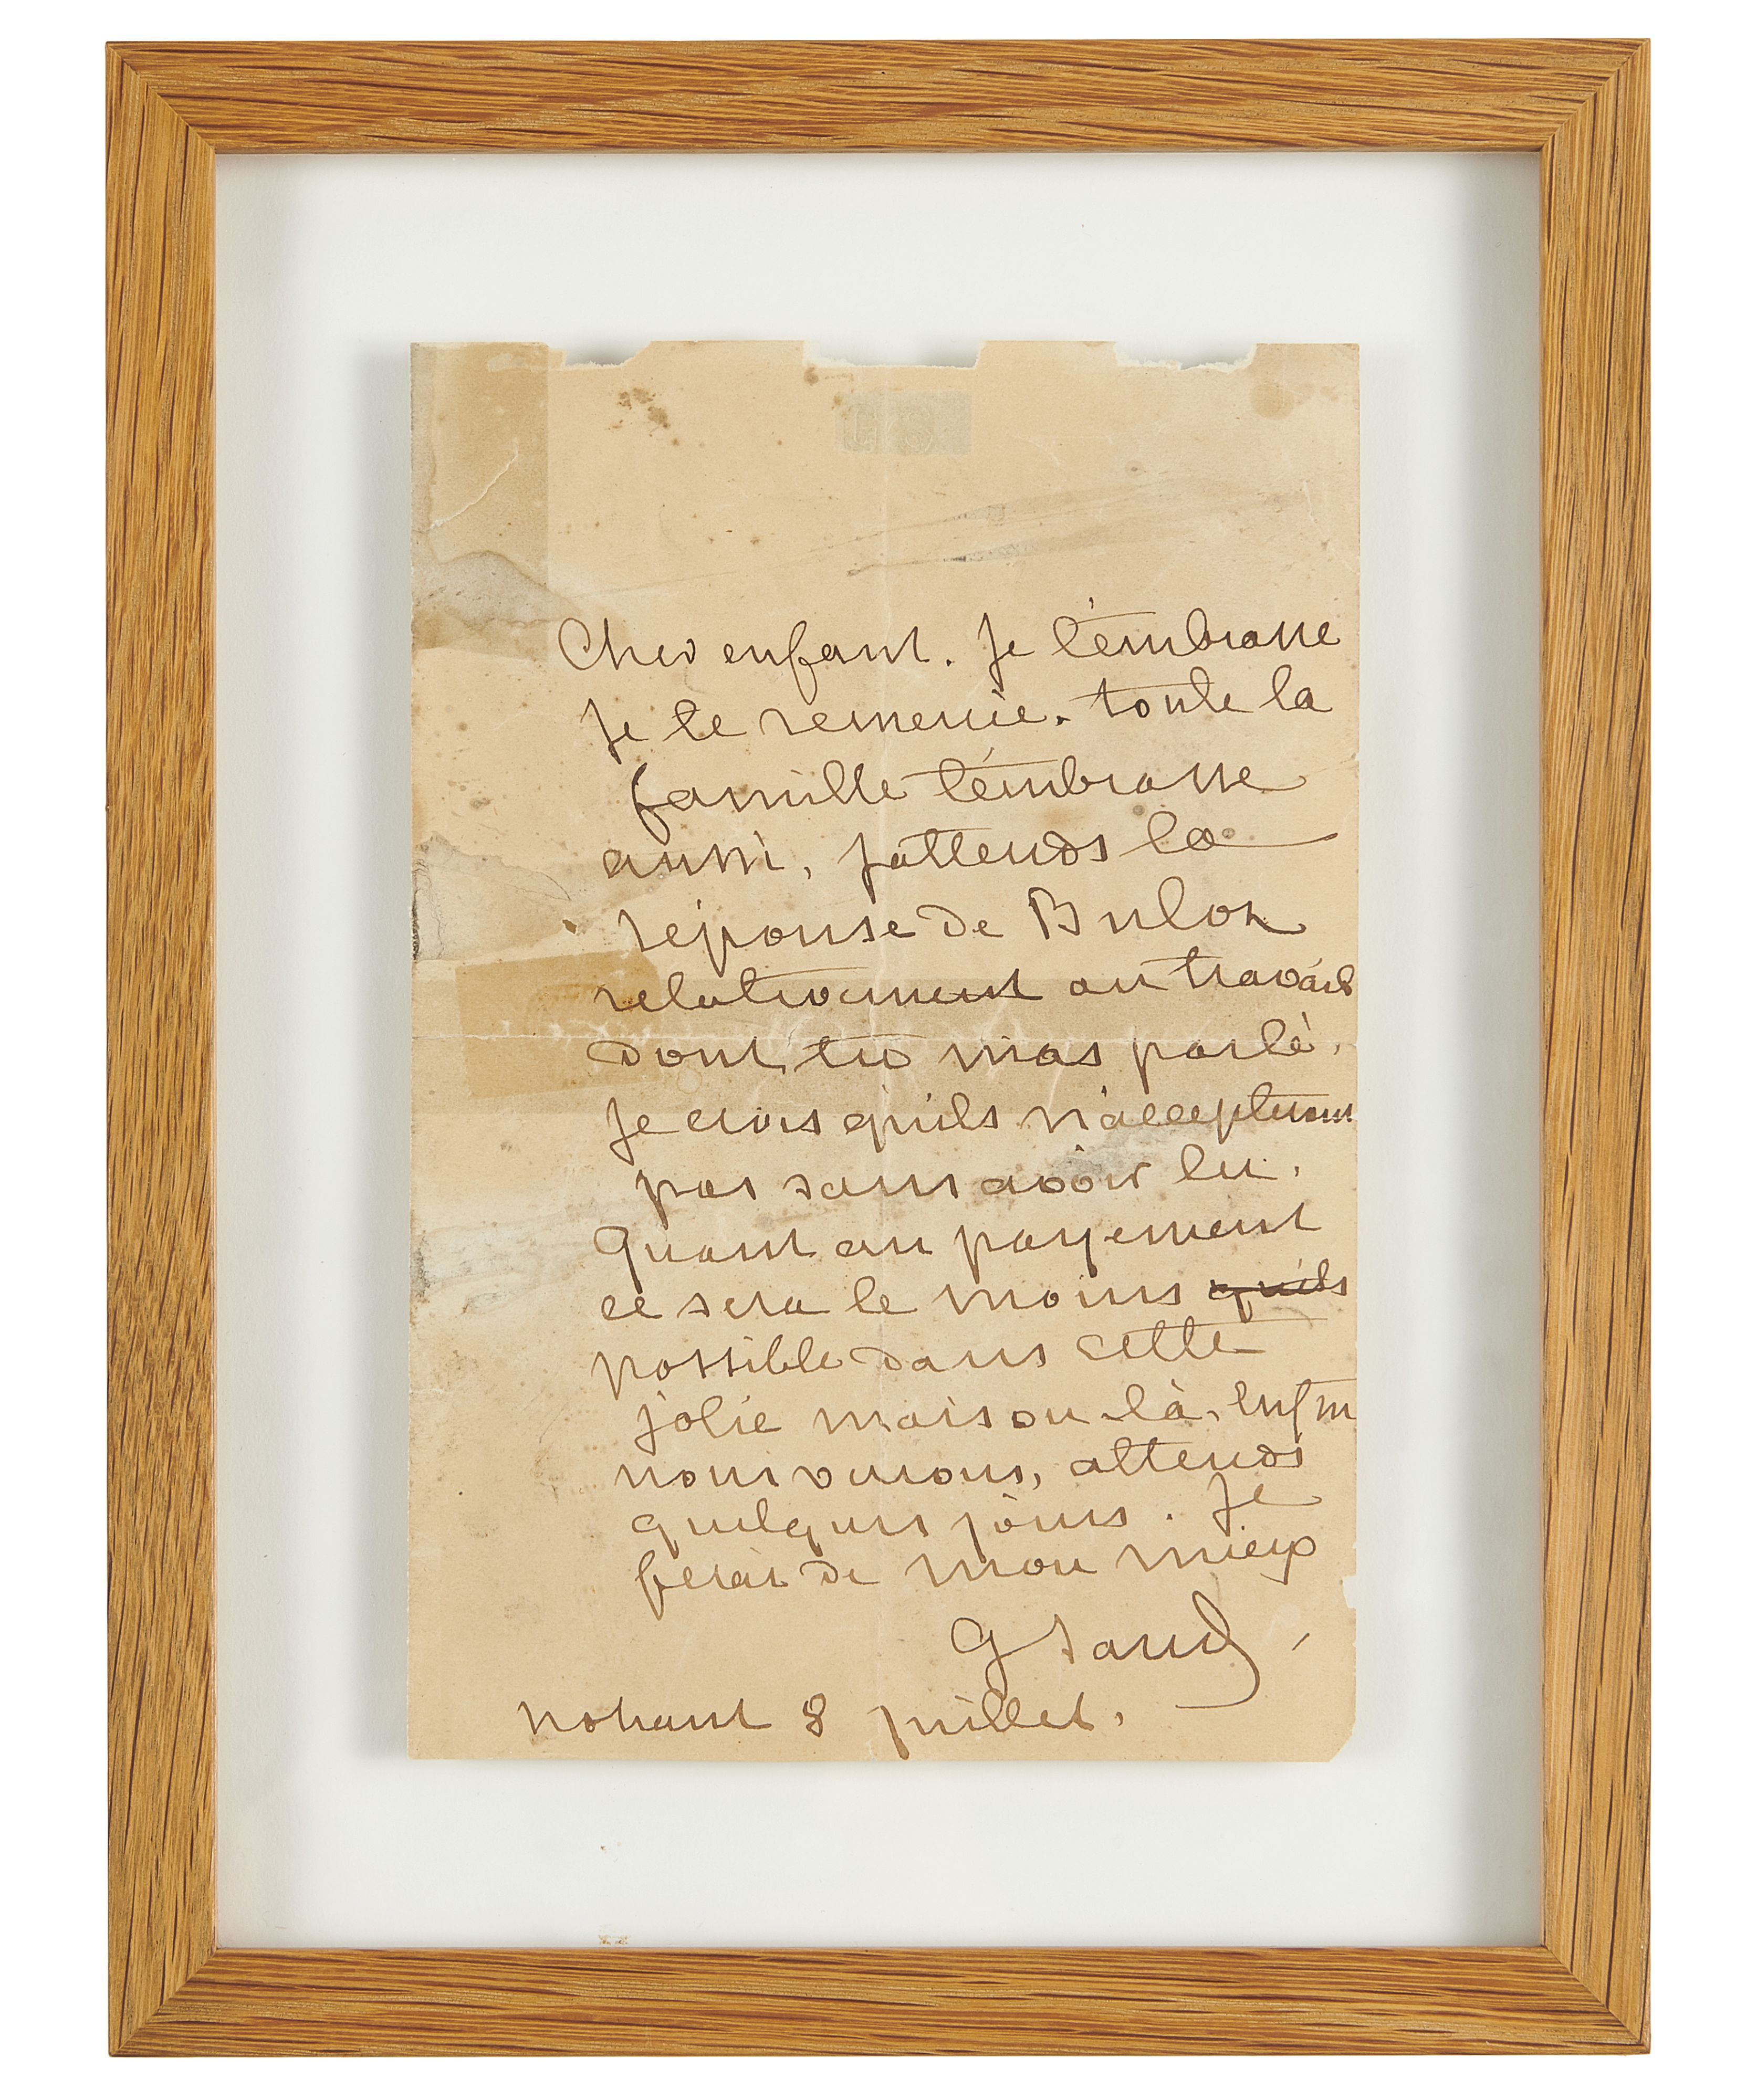 Cher enfant. Je t'embrasse
Je te remercie. toute la
famille t'embrasse
aussi, j'attends la
réponse de Buloz
relativement au travail
dont tu m'as parlé.
Je crois qu'ils n'accepteront
pas sans avoir lu.
Quant au payement
ce sera le moins qu'ils
possible dans cette
jolie maison-là, enfin
nous verrons, attends
quelques jours. Je
ferai de mon mieux
G Sand
Nohant 8 juillet.